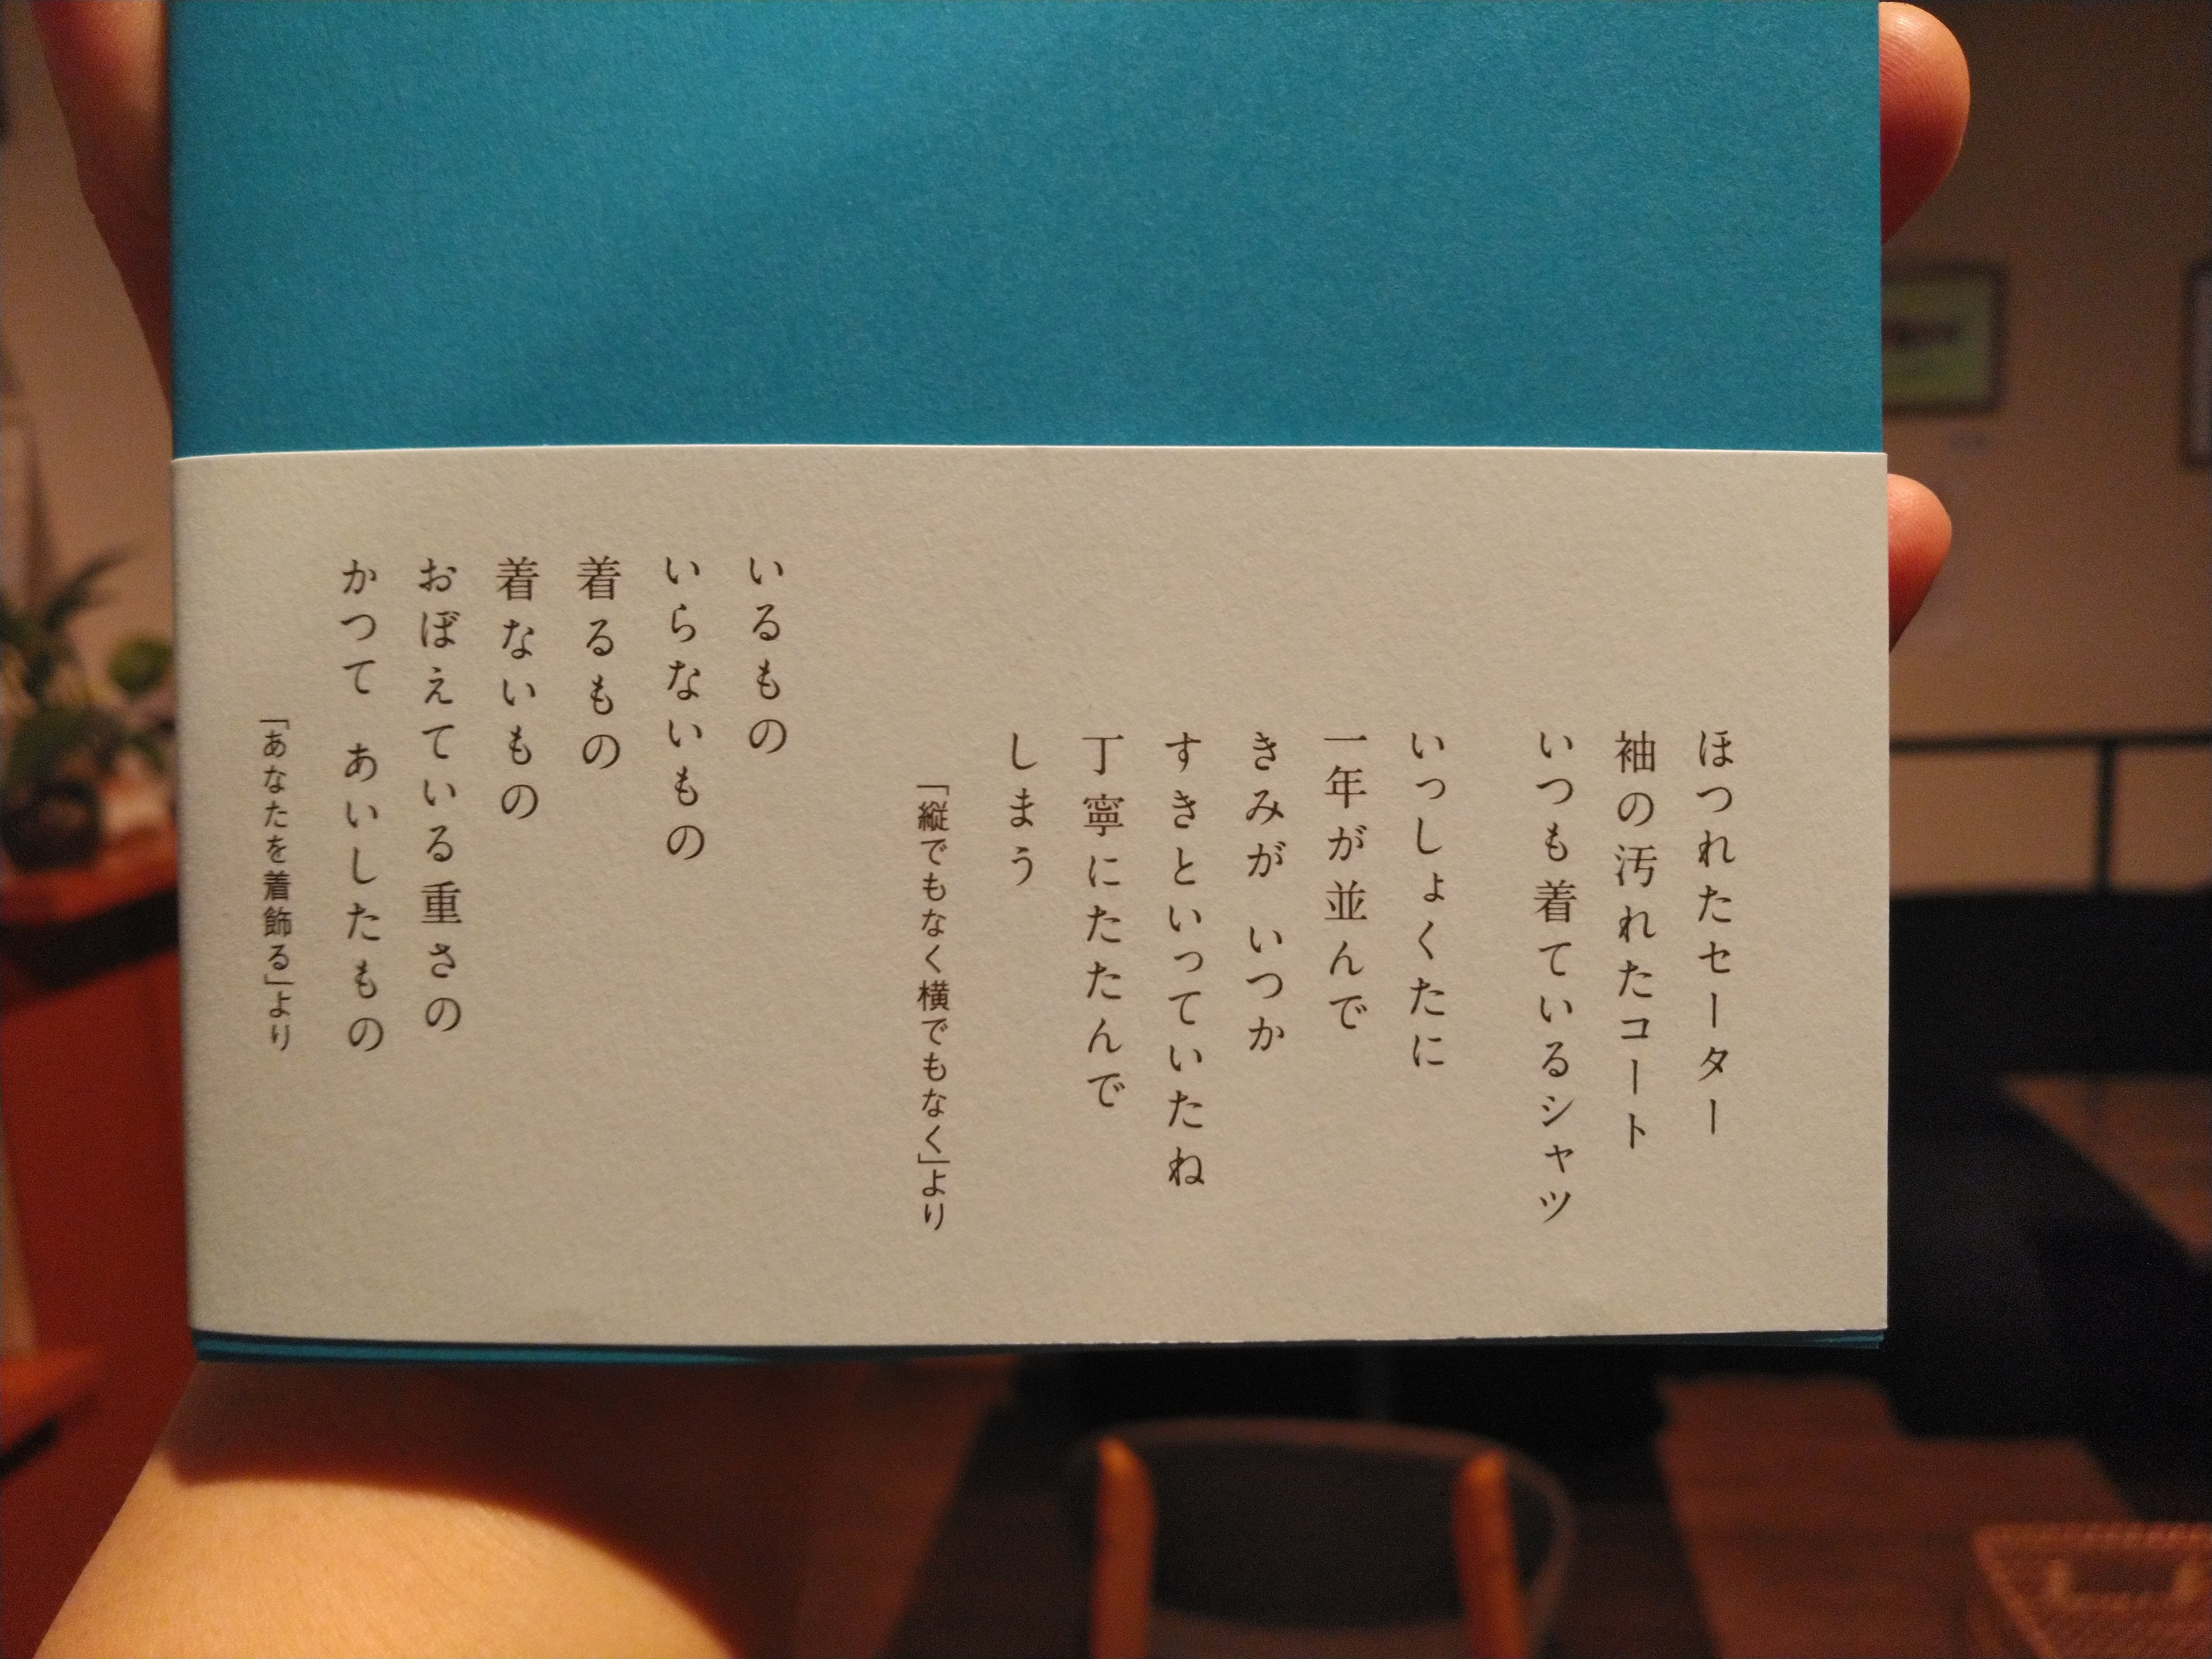 ほつれたセーター
袖の汚れたコート
いつも着ているシャツ
いっしょくたに
一年が並んで
きみが いつか
すきといっていたね
丁寧にたたんで
しまう
「縦でもなく横でもなく」より
いるもの
いらないもの
着るもの
着ないもの
おぼえている重さの
かつて あいしたもの
「あなたを着飾る」より